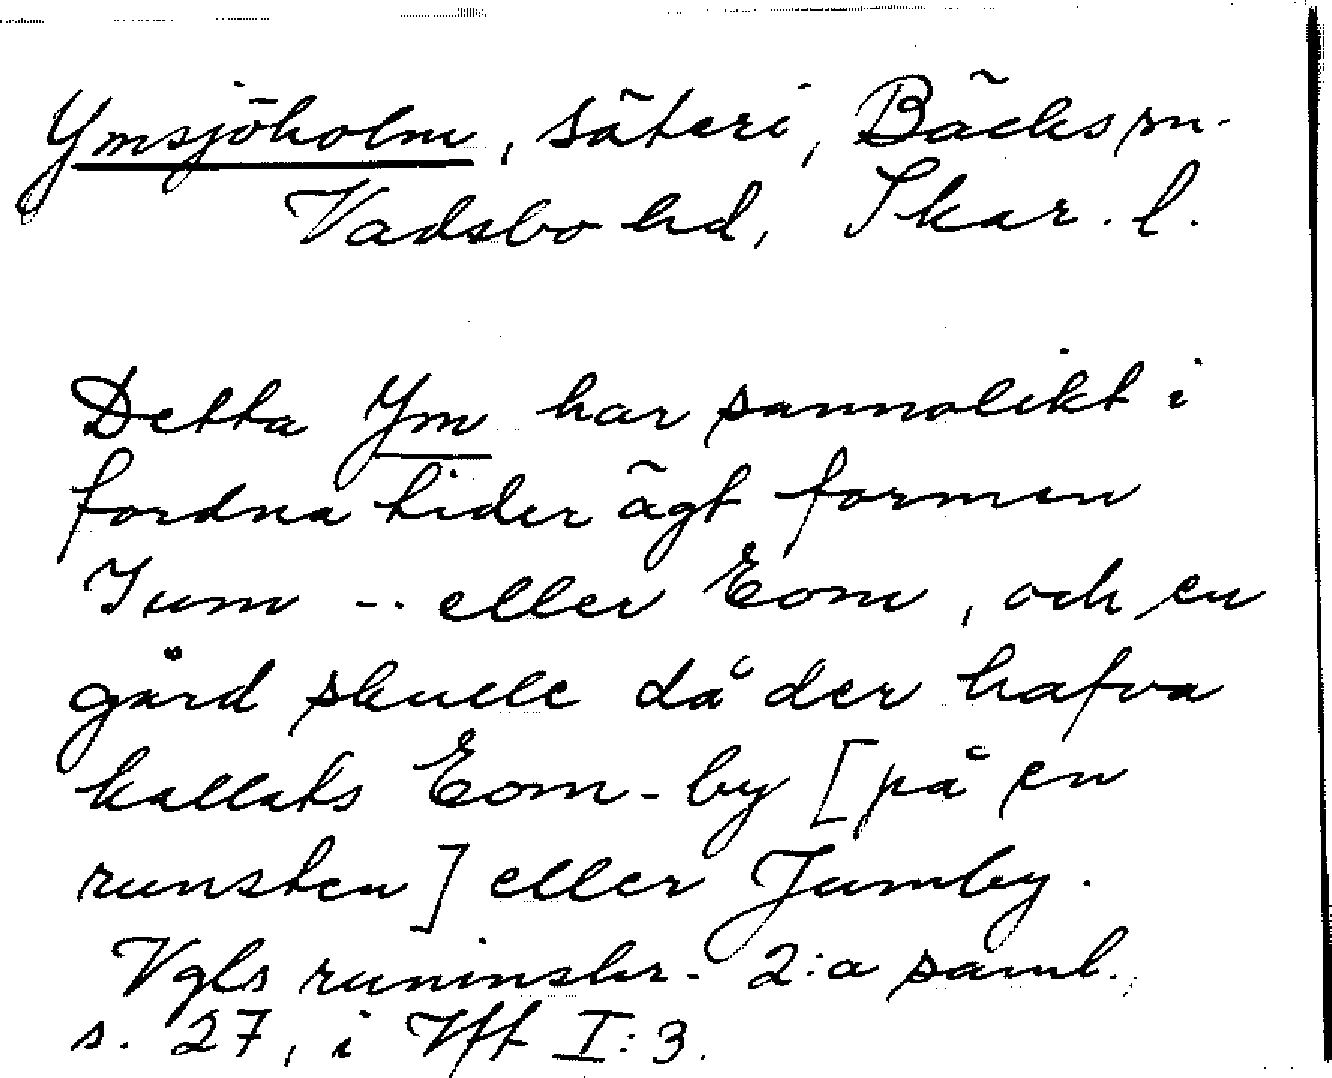 Ymsjöholm, säteri, Bäcks sn.
Vadsbo hd, Skar. l.
Detta Ym har sannolikt i
fordna tider ägt formen
Ium -. eller Eom, och en
gård skulle då der hafva
kallats Eom-by [på en
runsten] eller Jumby.
Vgls runinskr. 2:a saml.
s. 27, i Vft I:3.